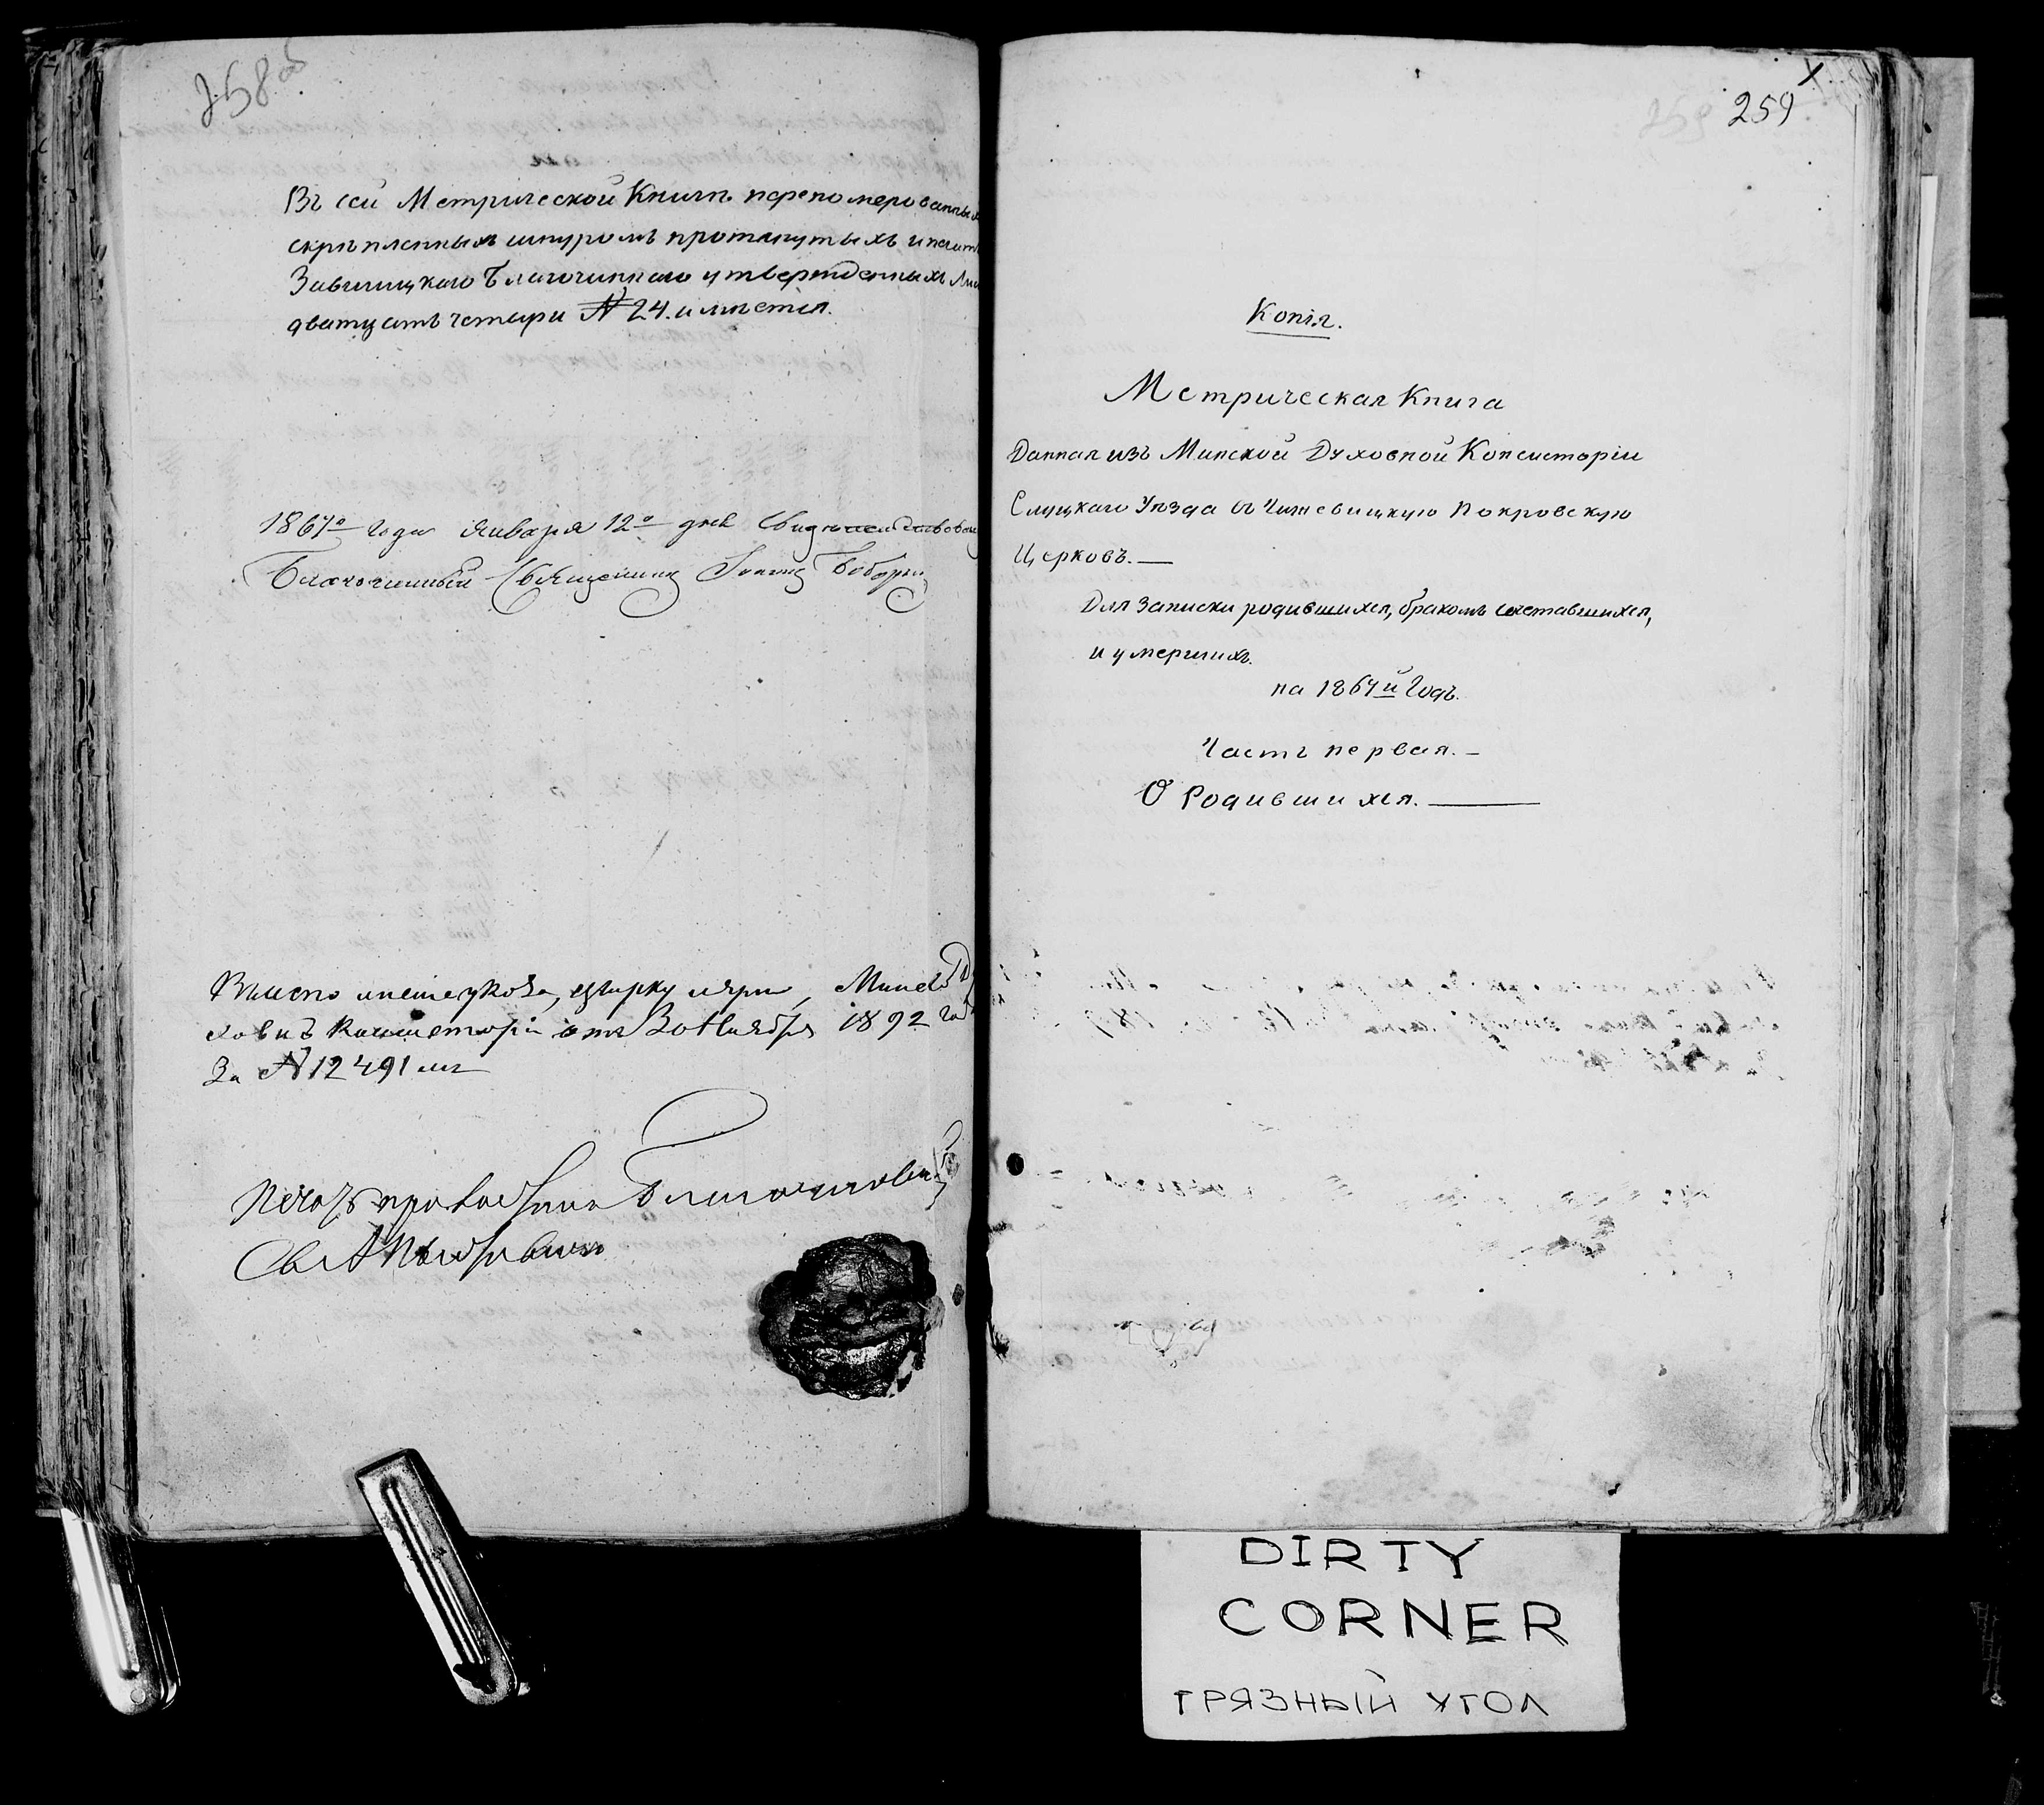 258 об
Въ сей Метрической Книгѣ перепомерованных
скрѣпленныхъ шнуромъ протянутыхъ и печат
Завшицкаго Благочиннаго утвержденныхъ Лис
дватцать четыри № 24. имѣется.
1867го года января 12го дня Свидѣтельствовал
Благочинный Священникъ Іоаннъ
Вмѣсто циркуляра, Минск Ду
ховнъ Консисторіи отъ 30 Ноября 1892 года
За № 12491 мъ
Печать приложилъ Благочинный
Свя
259
Копія.
Метрическая Книга
Данная изъ Минской Духовной Консисторіи
Слуцкаго Уѣзда въ Чижевицкую Покровскую
Церковъ.—
Для записки родившихся, бракомъ сочетавшихся,
и умершихъ.
на 1867й Годъ.
Часть первая.—
О Родившихся.—
DIRTY
CORNER
ГРЯЗНЫЙ УГОЛ